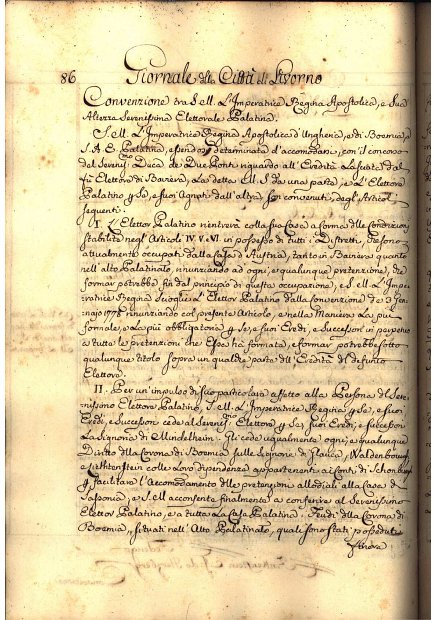 86 Giornale della Città di Livorno
Convenzione tra S. M. L'Imperatrice Regina Apostolica, e Sua
Altezza Serenissima Elettorale Palatina.
S. M. L'Imperatrice Regina Apostolica d'Ungheria, e di Boemia, e
S. A. E. Palatina, essendosi determinata d'accomodarsi, con il concorso
del Sereniss. Duca de Due Ponti riguardo all'Eredità Lasciata dal
fù Elettore di Baviera, La detta M. S. da una parte, e L'Elettore
Palatino p Se, e suoi Agnati dall'altra, son convenuti, degl'Articoli
seguenti.
I. L'Elettor Palatino rientrerà colla sua Casa a forma delle Condizioni
stabilite negl'Articoli IV. V. e VI. in possesso di tutti i Distretti, che sono
attualmente occupati dalla Casa d'Austria, tanto in Baviera quanto
nell'alto Palatinato, rinunziando ad ogni, e qualunque pretenzione, che
formar potrebbe fin dal principio di questa occupazione, e S. M. L'Impe
ratrice Regina Scioglie L'Elettor Palatino dalla convenzione de 3 Gen
naijo 1778. rinunziando col presente Articolo, e nella Maniera La più
formale, e La più obbligatoria p Se, e suoi Eredi, e Successori in perpetuo
a tutte le pretenzioni che Essa hà formata, e formar potrebbe sotto
qualunque titolo sopra un qualche parte dell'Eredità del defunto
Elettore.
II. Per un'impulso di suo particolare affetto alla Persona del Sere
nissimo Elettore Palatino, S. M. L'Imperatrice Regina p Se, e suoi
Eredi, e Successori cede al Sereniss. Elettore p Se, suoi Eredi, e Successori
La Signoria di Mindelheim. Gli cede ugualmente ogni, e qualunque
Diritto della Corona di Boemia sulle Signorie di Glauca, Waldenbourg,
e Lichtenstein colle Loro dipendenze appartenenti ai Conti di Schonbourg
p facilitare L'Accomodamento delle pretenzioni allodiali alla Casa di
Sassonia, e S. M. acconsente finalmente a conferire al Serenissimo
Elettor Palatino, e a tutta La Casa Palatina i Feudi della Corona di
Boemia, situati nell'Alto Palatinato, quali sono stati posseduti